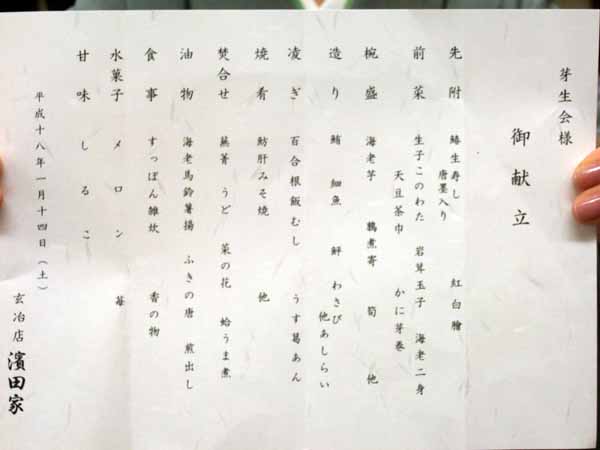 芽生会様
御献立
先附 鰆生寿し 紅白膾
唐墨入り
前菜 生子このわた 岩茸玉子 海老二身
天豆茶巾 かに芽巻
椀盛 海老芋 鶉煮寄 筍 他
造り 鮪 細魚 鮃 わさび
他あしらい
凌ぎ 百合根飯むし うす葛あん
焼肴 魴肝みそ焼 他
焚合せ 蕪菁 うど 菜の花 蛤うま煮
油物 海老馬鈴薯揚 ふきの唐 煎出し
食事 すっぽん雑炊 香の物
水菓子 メロン 苺
甘味 しるこ
平成十八年一月十四日(土)
玄冶店 濱田家